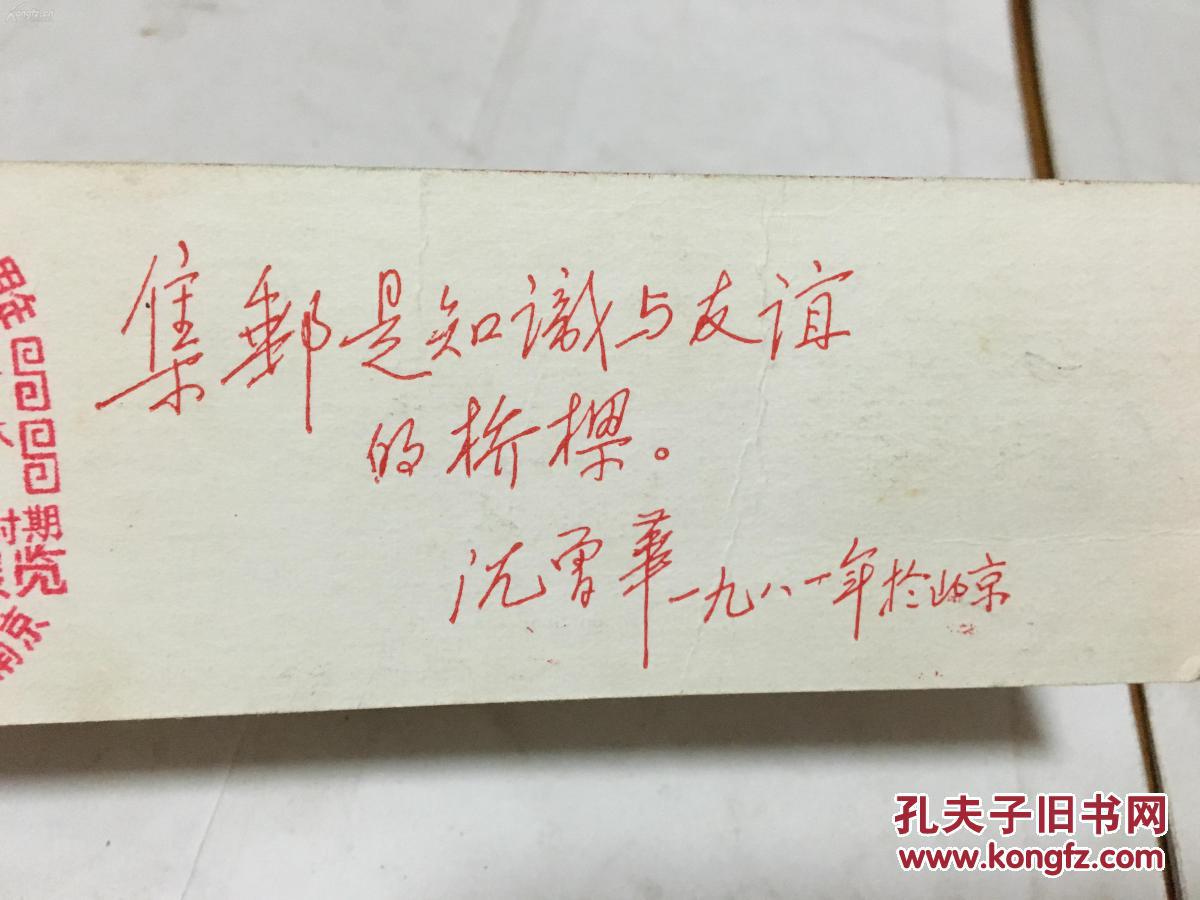 集郵是知識与友谊
的桥樑。
沈曾華一九八一年於北京
时期
览
南京
孔夫子旧书网
www.kongfz.com